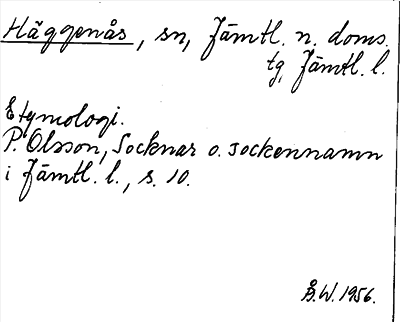 Häggenås, sn, Jämtl. n. doms.
tg, Jämtl. l.
Etymologi.
P. Olsson, Socknar o. sockennamn
i Jämtl. l., s. 10.
Å.W. 1956.